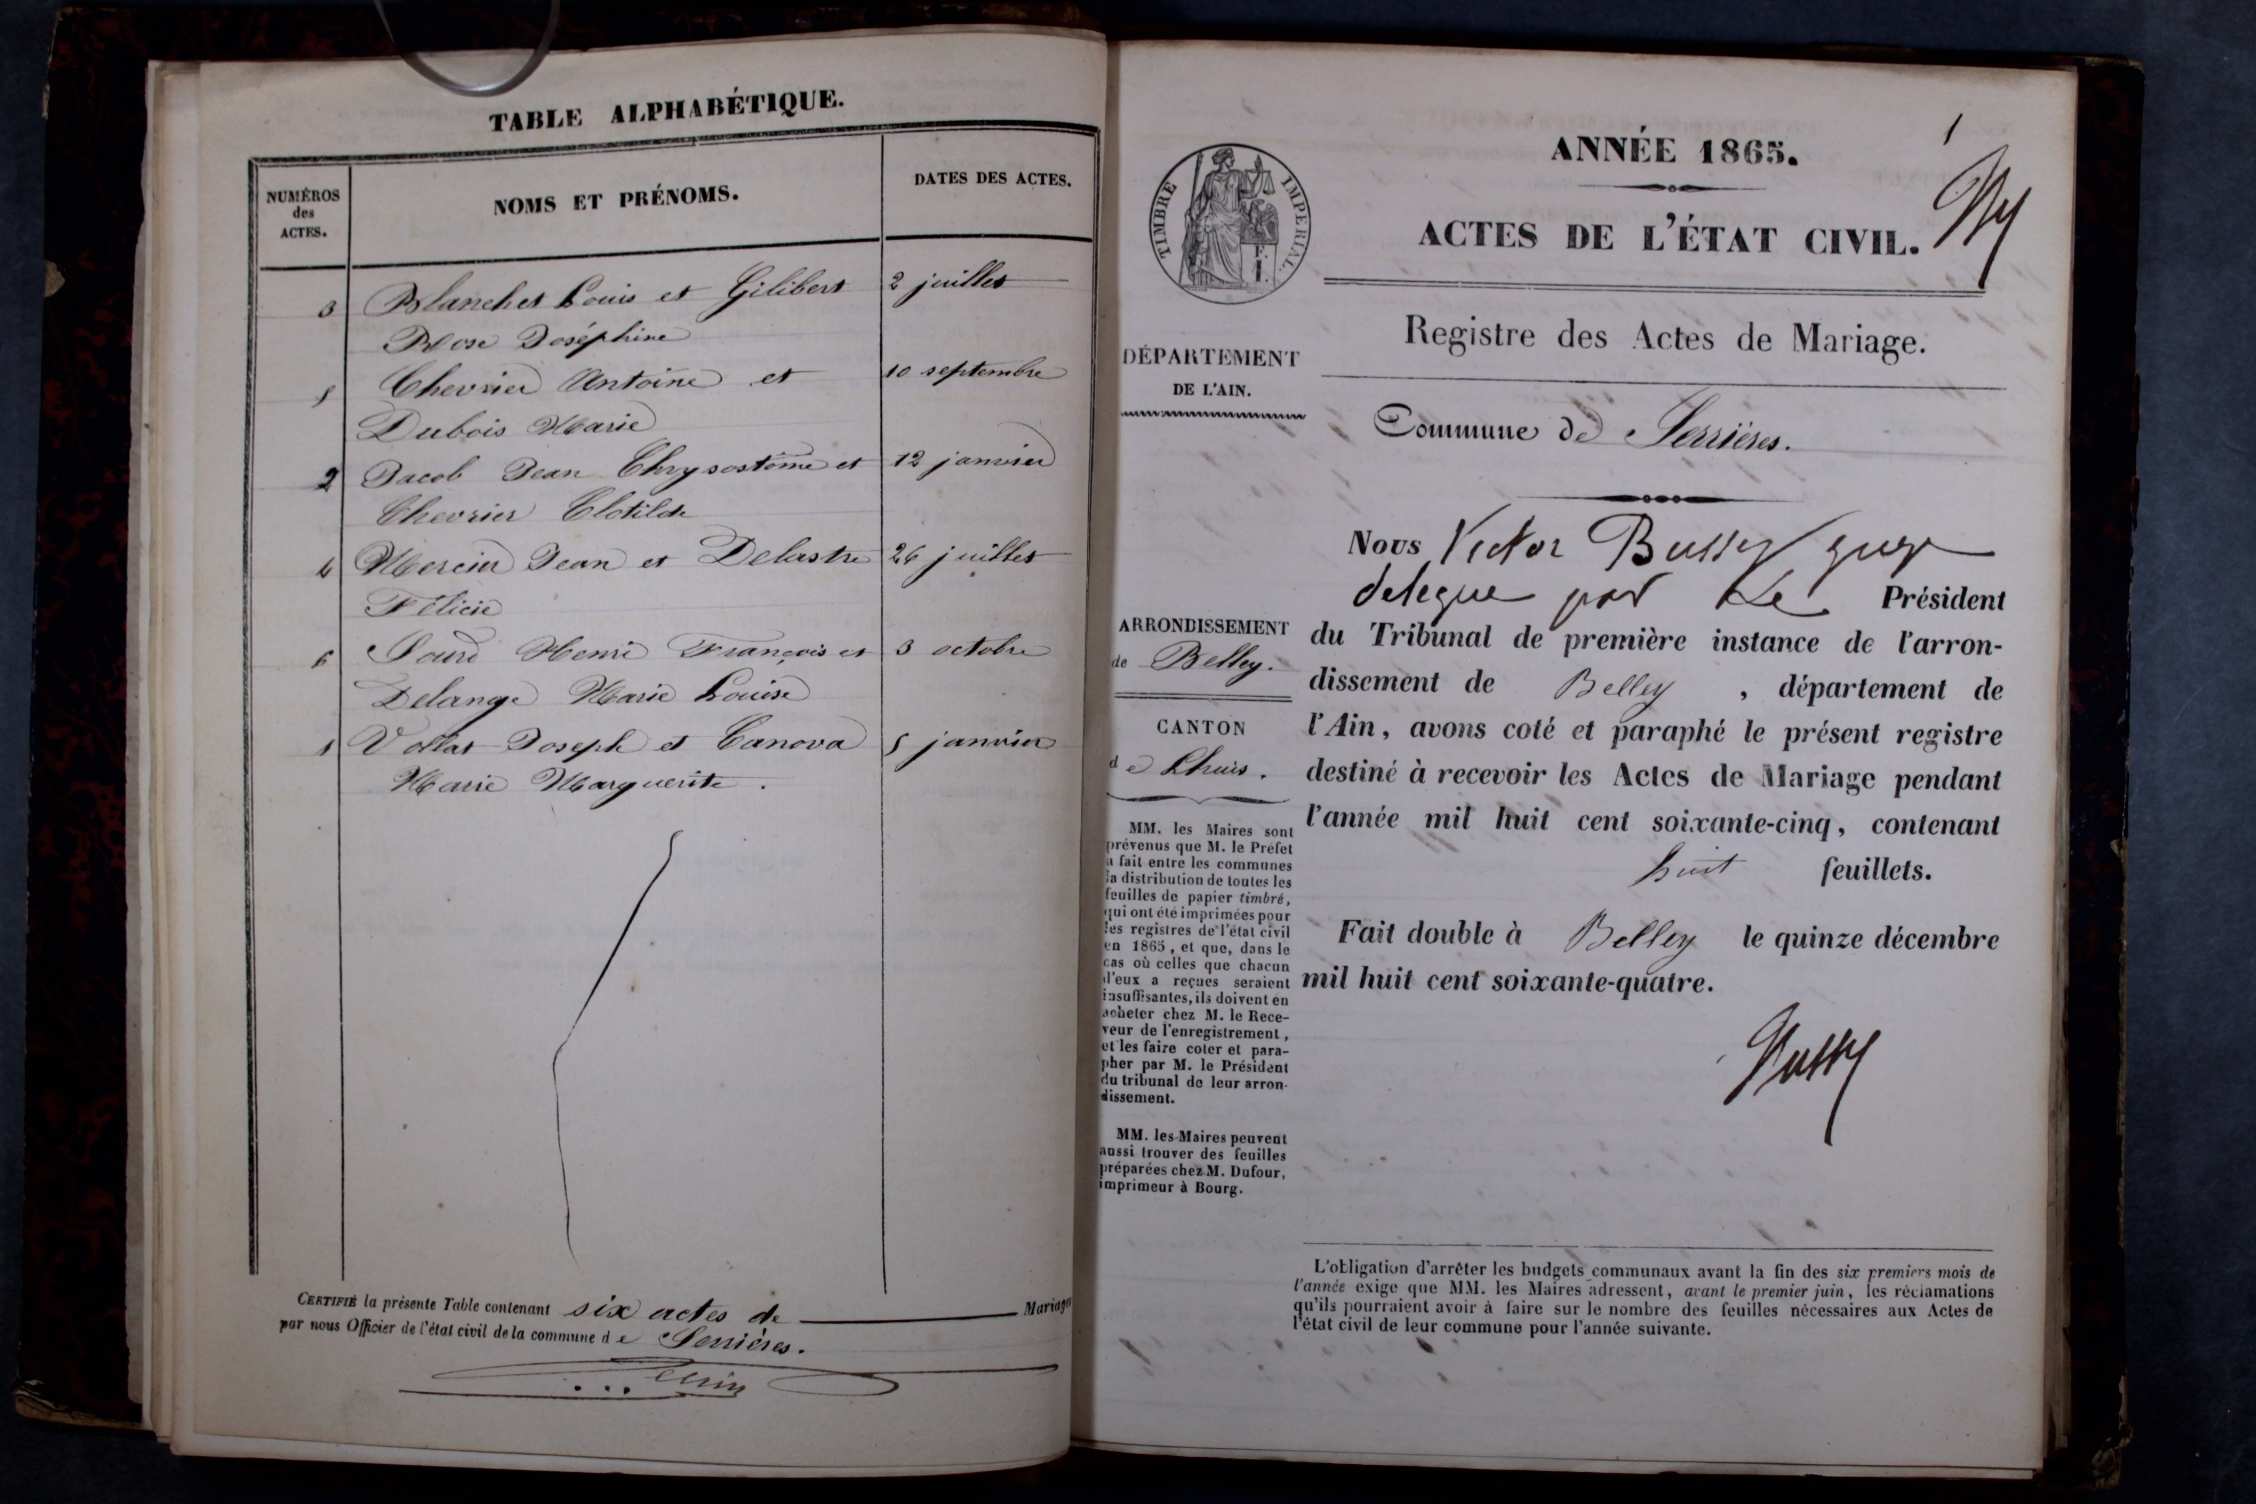 TABLE ALPHABÉTIQUE.
NUMÉROS
des
ACTES.
NOMS ET PRÉNOMS.
DATES DES ACTES.
3 Blanchet Louis et Gilibert 2 juillet
Rose Joséphine
5 Chevrier Antoine et 10 septembre
Dubois Marie
2 Jacob Jean Chrysostôme et 12 janvier
Chevrier Clotilde
4 Mercier Jean et Delastre 26 juillet
Félicie
6 Sourd Henri François et 3 octobre
Delange Marie Louise
1 Vollat Joseph et Canova 5 janvier
Marie Marguerite.
CERTIFIÉ la présente Table contenant six actes de Mariages
par nous Officier de l'état civil de la commune de Serrières.
TIMBRE IMPERIAL.
1 F.
1
ANNÉE 1865.
ACTES DE L'ÉTAT CIVIL.
Registre des Actes de Mariage.
DÉPARTEMENT
DE L'AIN.
ARRONDISSEMENT
de Belley.
CANTON
de Lhuis.
MM. les Maires sont
prévenus que M. le Préfet
a fait entre les communes
la distribution de toutes les
feuilles de papier timbré,
qui ont été imprimées pour
les registres de l'état civil
en 1865, et que, dans le
cas où celles que chacun
d'eux a reçues seraient
insuffisantes, ils doivent en
acheter chez M. le Rece-
veur de l'enregistrement,
et les faire coter et para-
pher par M. le Président
du tribunal de leur arron-
dissement.
MM. les Maires peuvent
aussi trouver des feuilles
préparées chez M. Dufour,
imprimeur à Bourg.
Commune de Serrières.
Nous Victor Bussy juge
delegue par Le Président
du Tribunal de première instance de l'arron-
dissement de Belley, département de
l'Ain, avons coté et paraphé le présent registre
destiné à recevoir les Actes de Mariage pendant
l'année mil huit cent soixante-cinq, contenant
huit feuillets.
Fait double à Belley le quinze décembre
mil huit cent soixante-quatre.
Bussy
L'obligation d'arrêter les budgets communaux avant la fin des six premiers mois de
l'année exige que MM. les Maires adressent, avant le premier juin, les réclamations
qu'ils pourraient avoir à faire sur le nombre des feuilles nécessaires aux Actes de
l'état civil de leur commune pour l'année suivante.